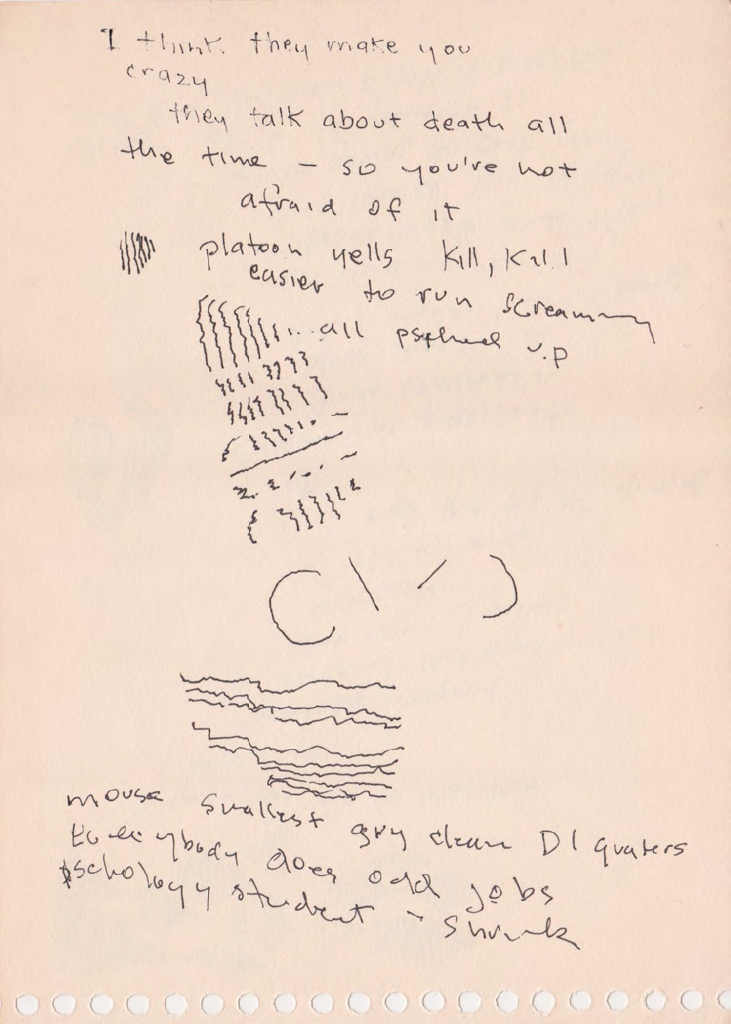 I think they make you
crazy
they talk about death all
the time – so you're not
afraid of it
platoon yells Kill, Kill
easier to run screaming
...all up
mouse smallest guy clean DI quaters
Everybody does odd jobs
pschology student – shrink